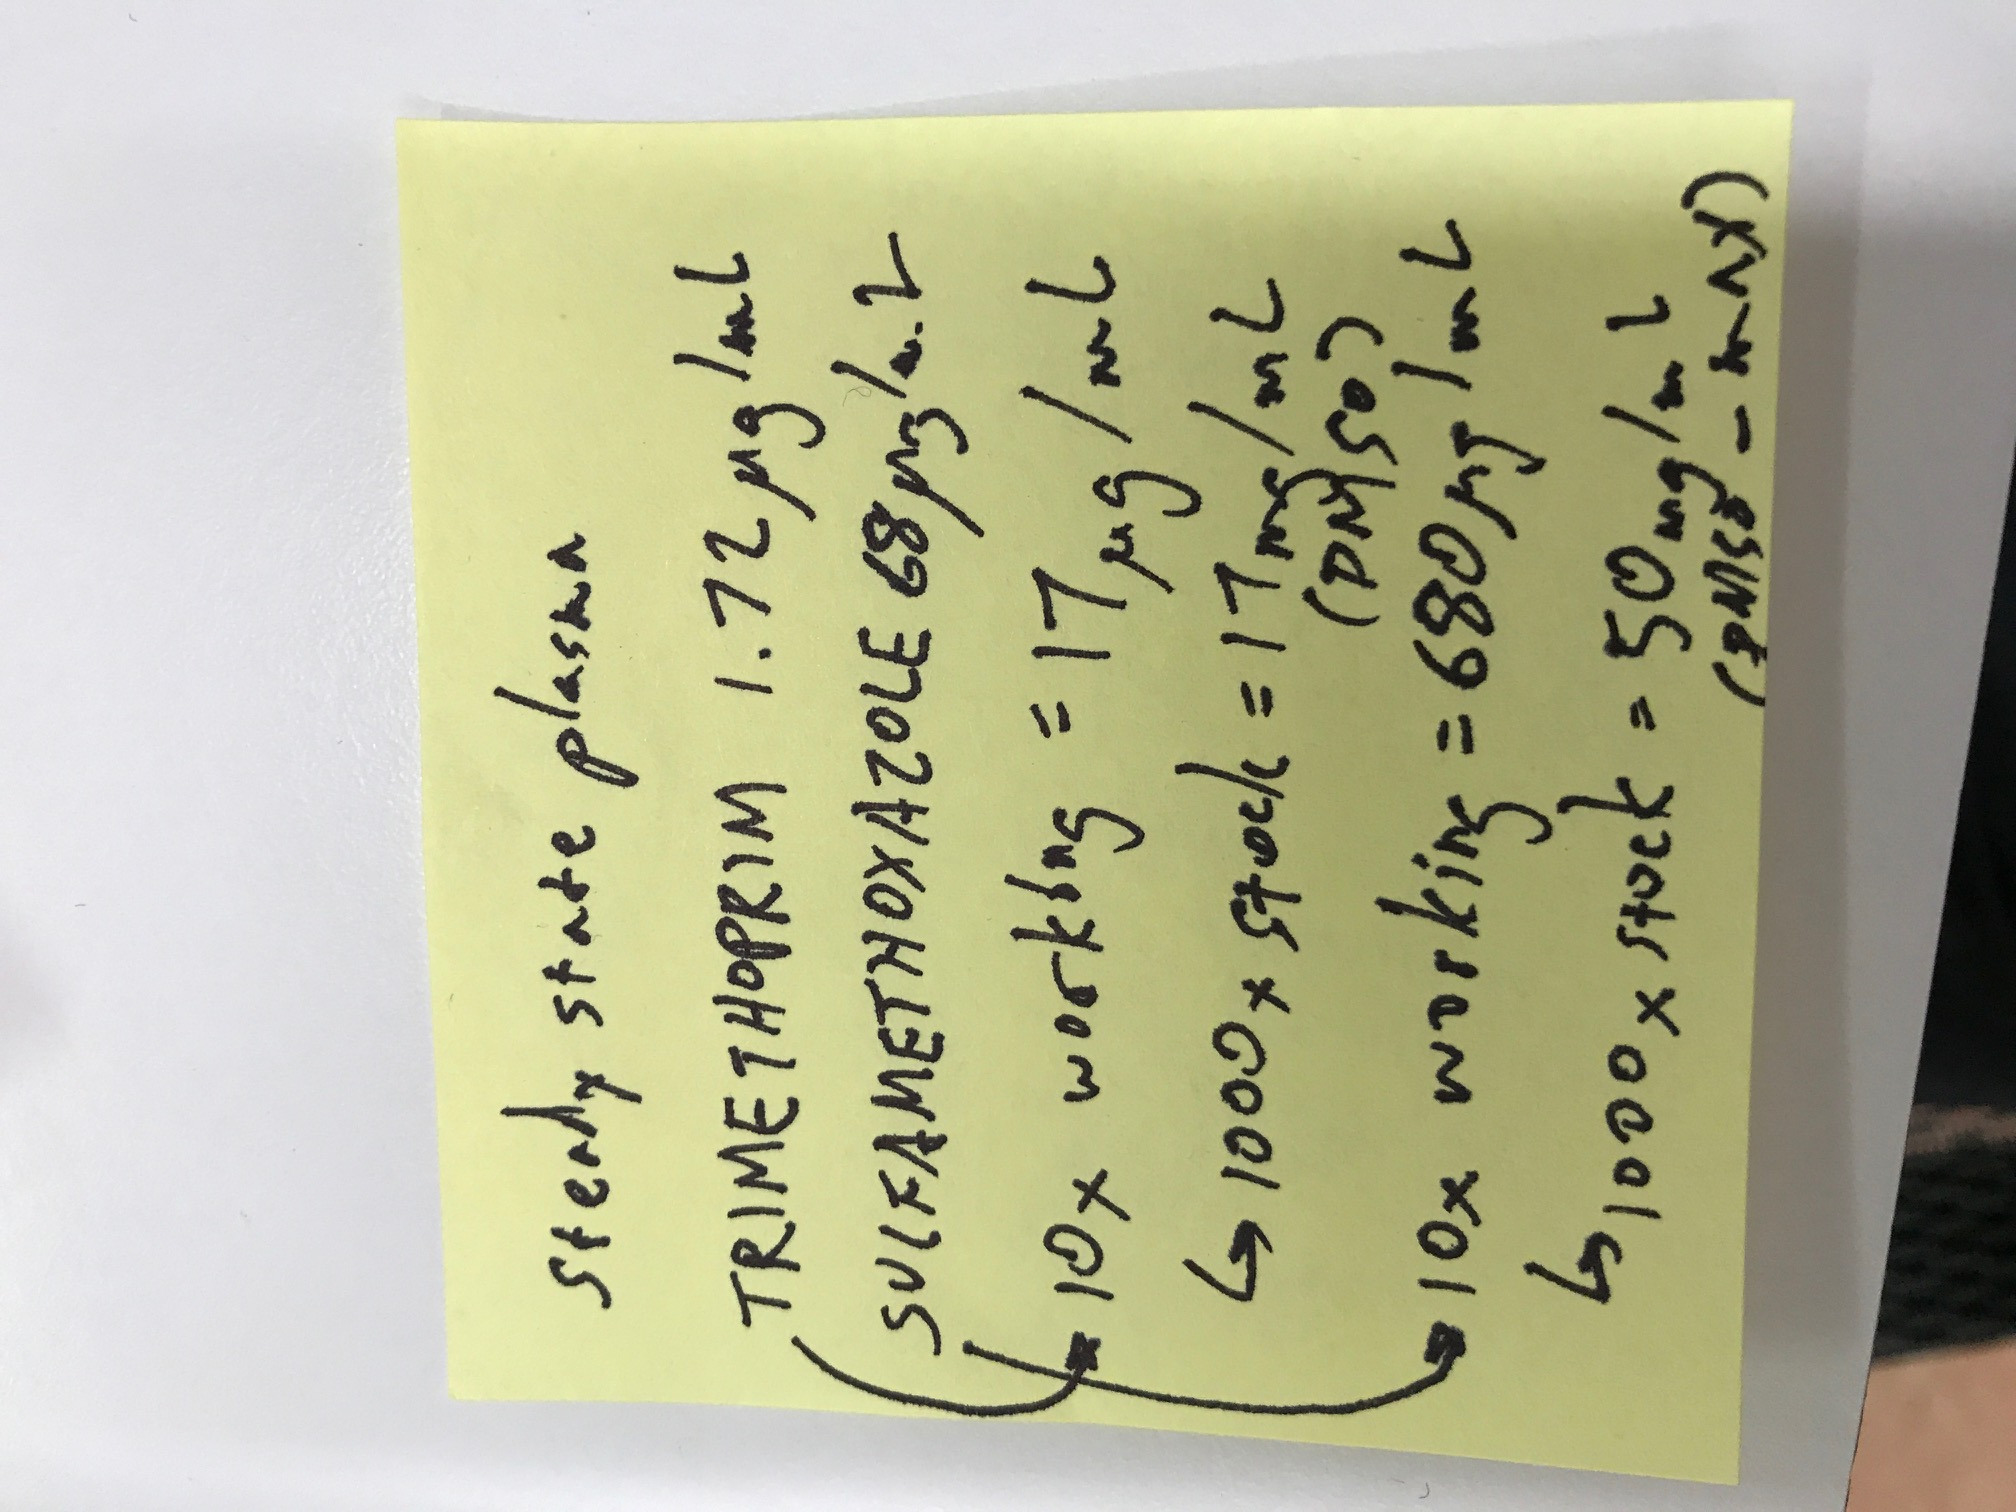 steady state plasma
TRIMETHOPRIM 1.72 µg/mL
SULFAMETHOXAZOLE 68 µg/mL
→ 10x working = 17 µg/mL
↳ 1000x stock = 17 mg/mL
(DMSO)
→ 10x working = 680 µg/mL
↳ 1000x stock = 50 mg/mL
(DMSO - MAX)